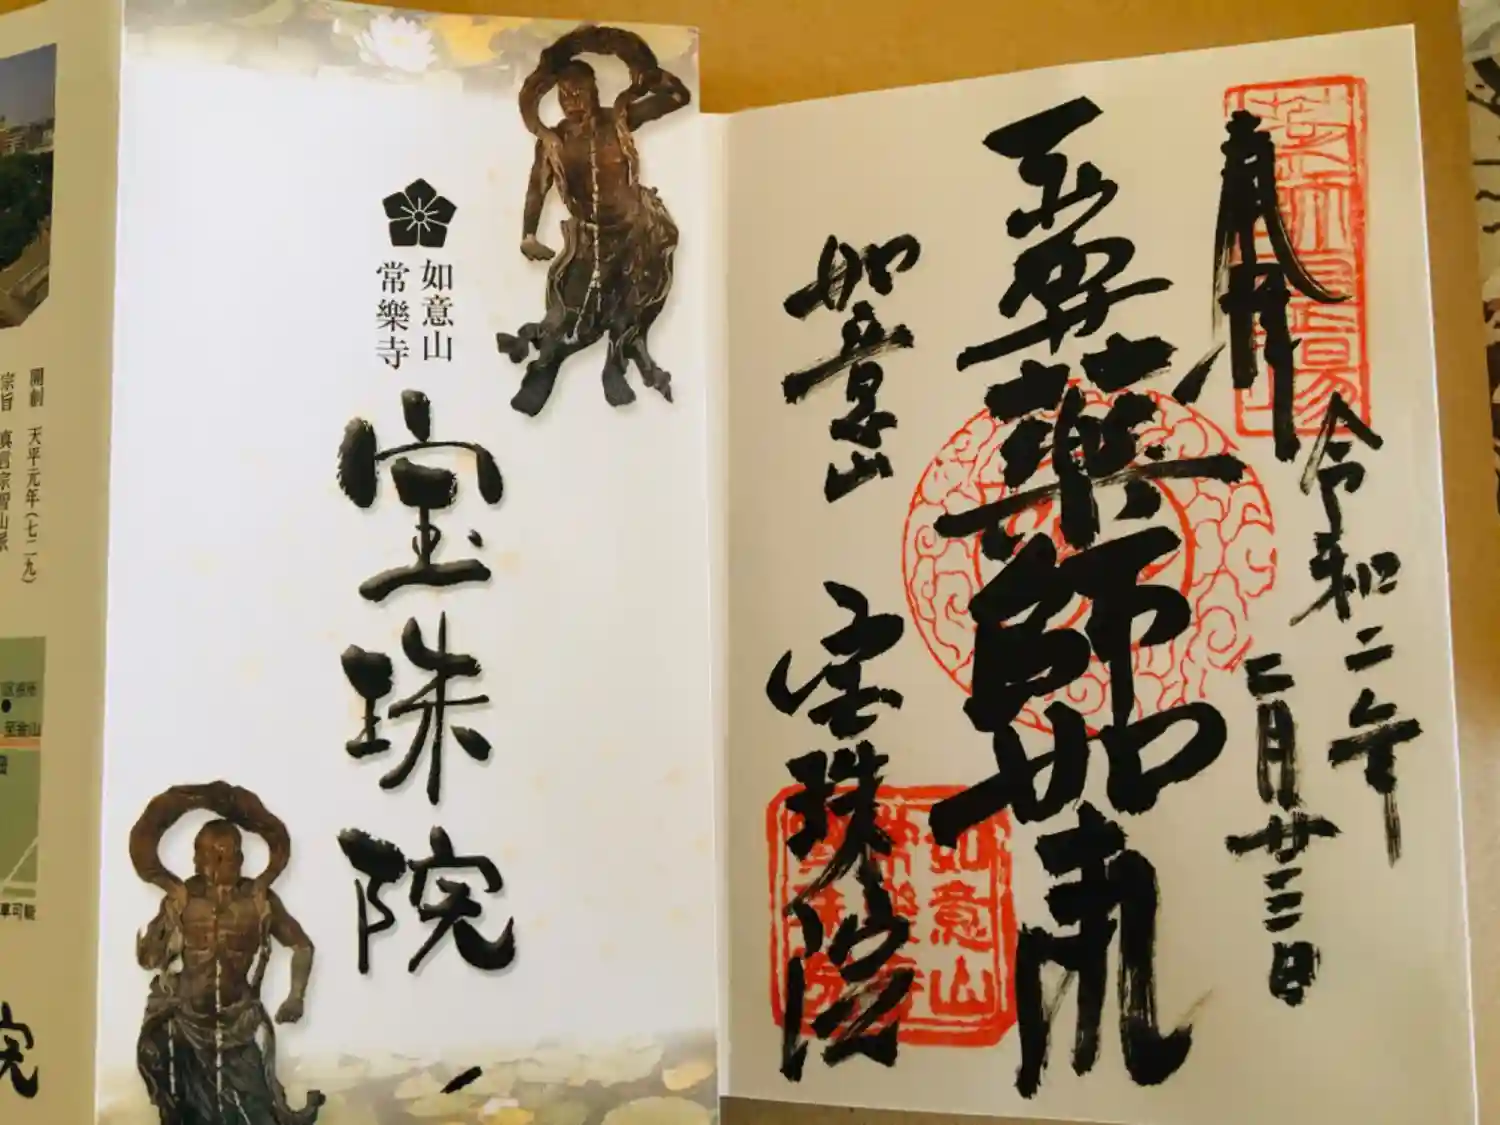 開創 天平元年(七二九)
宗旨 真言宗智山派
区役所
至金山
車可能
院
如意山
常樂寺
宝珠院
奉拝
令和二年
二月廿三日
本尊薬師如来
如意山
宝珠院
如意山
常樂寺
宝珠院